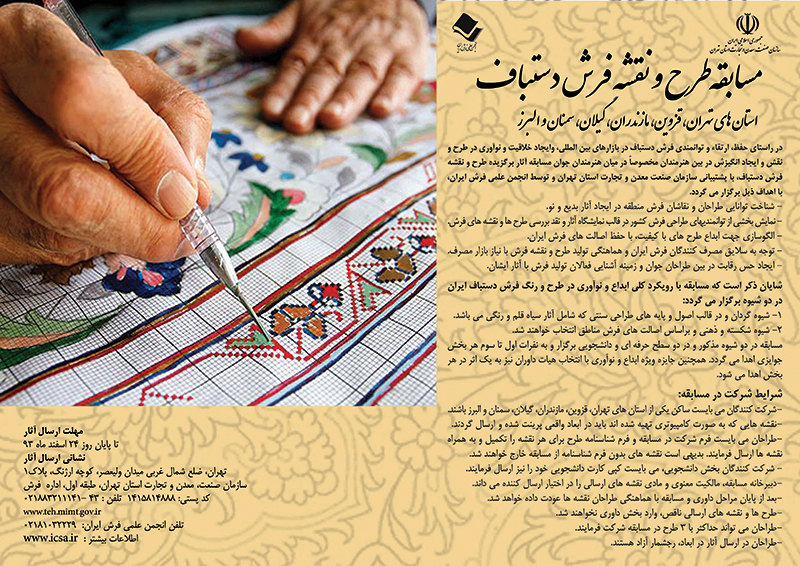 جمهوری اسلامی ایران
سازمان صنعت، معدن و تجارت استان تهران
مسابقه طرح و نقشه فرش دستباف
استان های تهران، قزوین، مازندران، گیلان، سمنان و البرز
در راستای حفظ، ارتقاء و توانمندی فرش دستباف در بازارهای بین المللی، وایجاد خلاقیت و نوآوری در طرح و
نقش و ایجاد انگیزش در بین هنرمندان مخصوصاً در میان هنرمندان جوان مسابقه آثار برگزیده طرح و نقشه
فرش دستباف، با پشتیبانی سازمان صنعت معدن و تجارت استان تهران و توسط انجمن علمی فرش ایران،
با اهداف ذیل برگزار می گردد.
- شناخت توانایی طراحان و نقاشان فرش منطقه در ایجاد آثار بدیع و نو.
- نمایش بخشی از توانمندیهای طراحی فرش کشور در قالب نمایشگاه آثار و نقد بررسی طرح ها و نقشه های فرش.
- الگوسازی جهت ابداع طرح های با کیفیت، با حفظ اصالت های فرش ایران.
- توجه به سلایق مصرف کنندگان فرش ایران و هماهنگی تولید طرح و نقشه فرش با نیاز بازار مصرف.
- ایجاد حس رقابت در بین طراحان جوان و زمینه آشنایی فعالان تولید فرش با آثار ایشان.
شایان ذکر است که مسابقه با رویکرد کلی ابداع و نوآوری در طرح و رنگ فرش دستباف ایران
در دو شیوه برگزار می گردد:
۱- شیوه گردان و در قالب اصول و پایه های طراحی سنتی که شامل آثار سیاه قلم و رنگی می باشد.
۲- شیوه شکسته و ذهنی و براساس اصالت های فرش مناطق انتخاب خواهند شد.
مسابقه در دو شیوه مذکور و در دو سطح حرفه ای و دانشجویی برگزار و به نفرات اول تا سوم هر بخش
جوایزی اهدا می گردد. همچنین جایزه ویژه ابداع و نوآوری با انتخاب هیات داوران نیز به یک اثر در هر
بخش اهدا می شود.
شرایط شرکت در مسابقه:
- شرکت کنندگان می بایست ساکن یکی از استان های تهران، قزوین، مازندران، گیلان، سمنان و البرز باشند.
- نقشه هایی که به صورت کامپیوتری تهیه شده اند باید در ابعاد واقعی پرینت شده و ارسال گردند.
- طراحان می بایست فرم شرکت در مسابقه و فرم شناسنامه طرح برای هر نقشه را تکمیل و به همراه
نقشه ها ارسال فرمایند. بدیهی است نقشه های بدون فرم شناسنامه از مسابقه خارج خواهند شد.
- شرکت کنندگان بخش دانشجویی، می بایست کپی کارت دانشجویی خود را نیز ارسال فرمایند.
- دبیرخانه مسابقه، مالکیت معنوی و مادی نقشه های ارسالی را در اختیار ارسال کننده می داند.
- بعد از پایان مراحل داوری و مسابقه با هماهنگی طراحان نقشه ها عودت داده خواهد شد.
- طرح ها و نقشه های ارسالی ناقص، وارد بخش داوری نخواهند شد.
- طراحان می تواند حداکثر با ۳ طرح در مسابقه شرکت فرمایند.
- طراحان در ارسال آثار در ابعاد، رجشمار آزاد هستند.
مهلت ارسال آثار
تا پایان روز ۲۴ اسفند ماه ۹۳
نشانی ارسال آثار
تهران، ضلع شمال غربی میدان ولیعصر، کوچه ارژنگ، پلاک۱
سازمان صنعت، معدن و تجارت استان تهران، طبقه اول، اداره فرش
کد پستی: ۱۴۱۵۸۱۴۸۸۸ تلفن : ۴۳ -۰۲۱۸۳۲۱۱۱۴۱
www.teh.mimt.gov.ir
تلفن انجمن علمی فرش ایران: ۰۲۱۸۱۰۳۲۲۲۹
اطلاعات بیشتر : www.icsa.ir